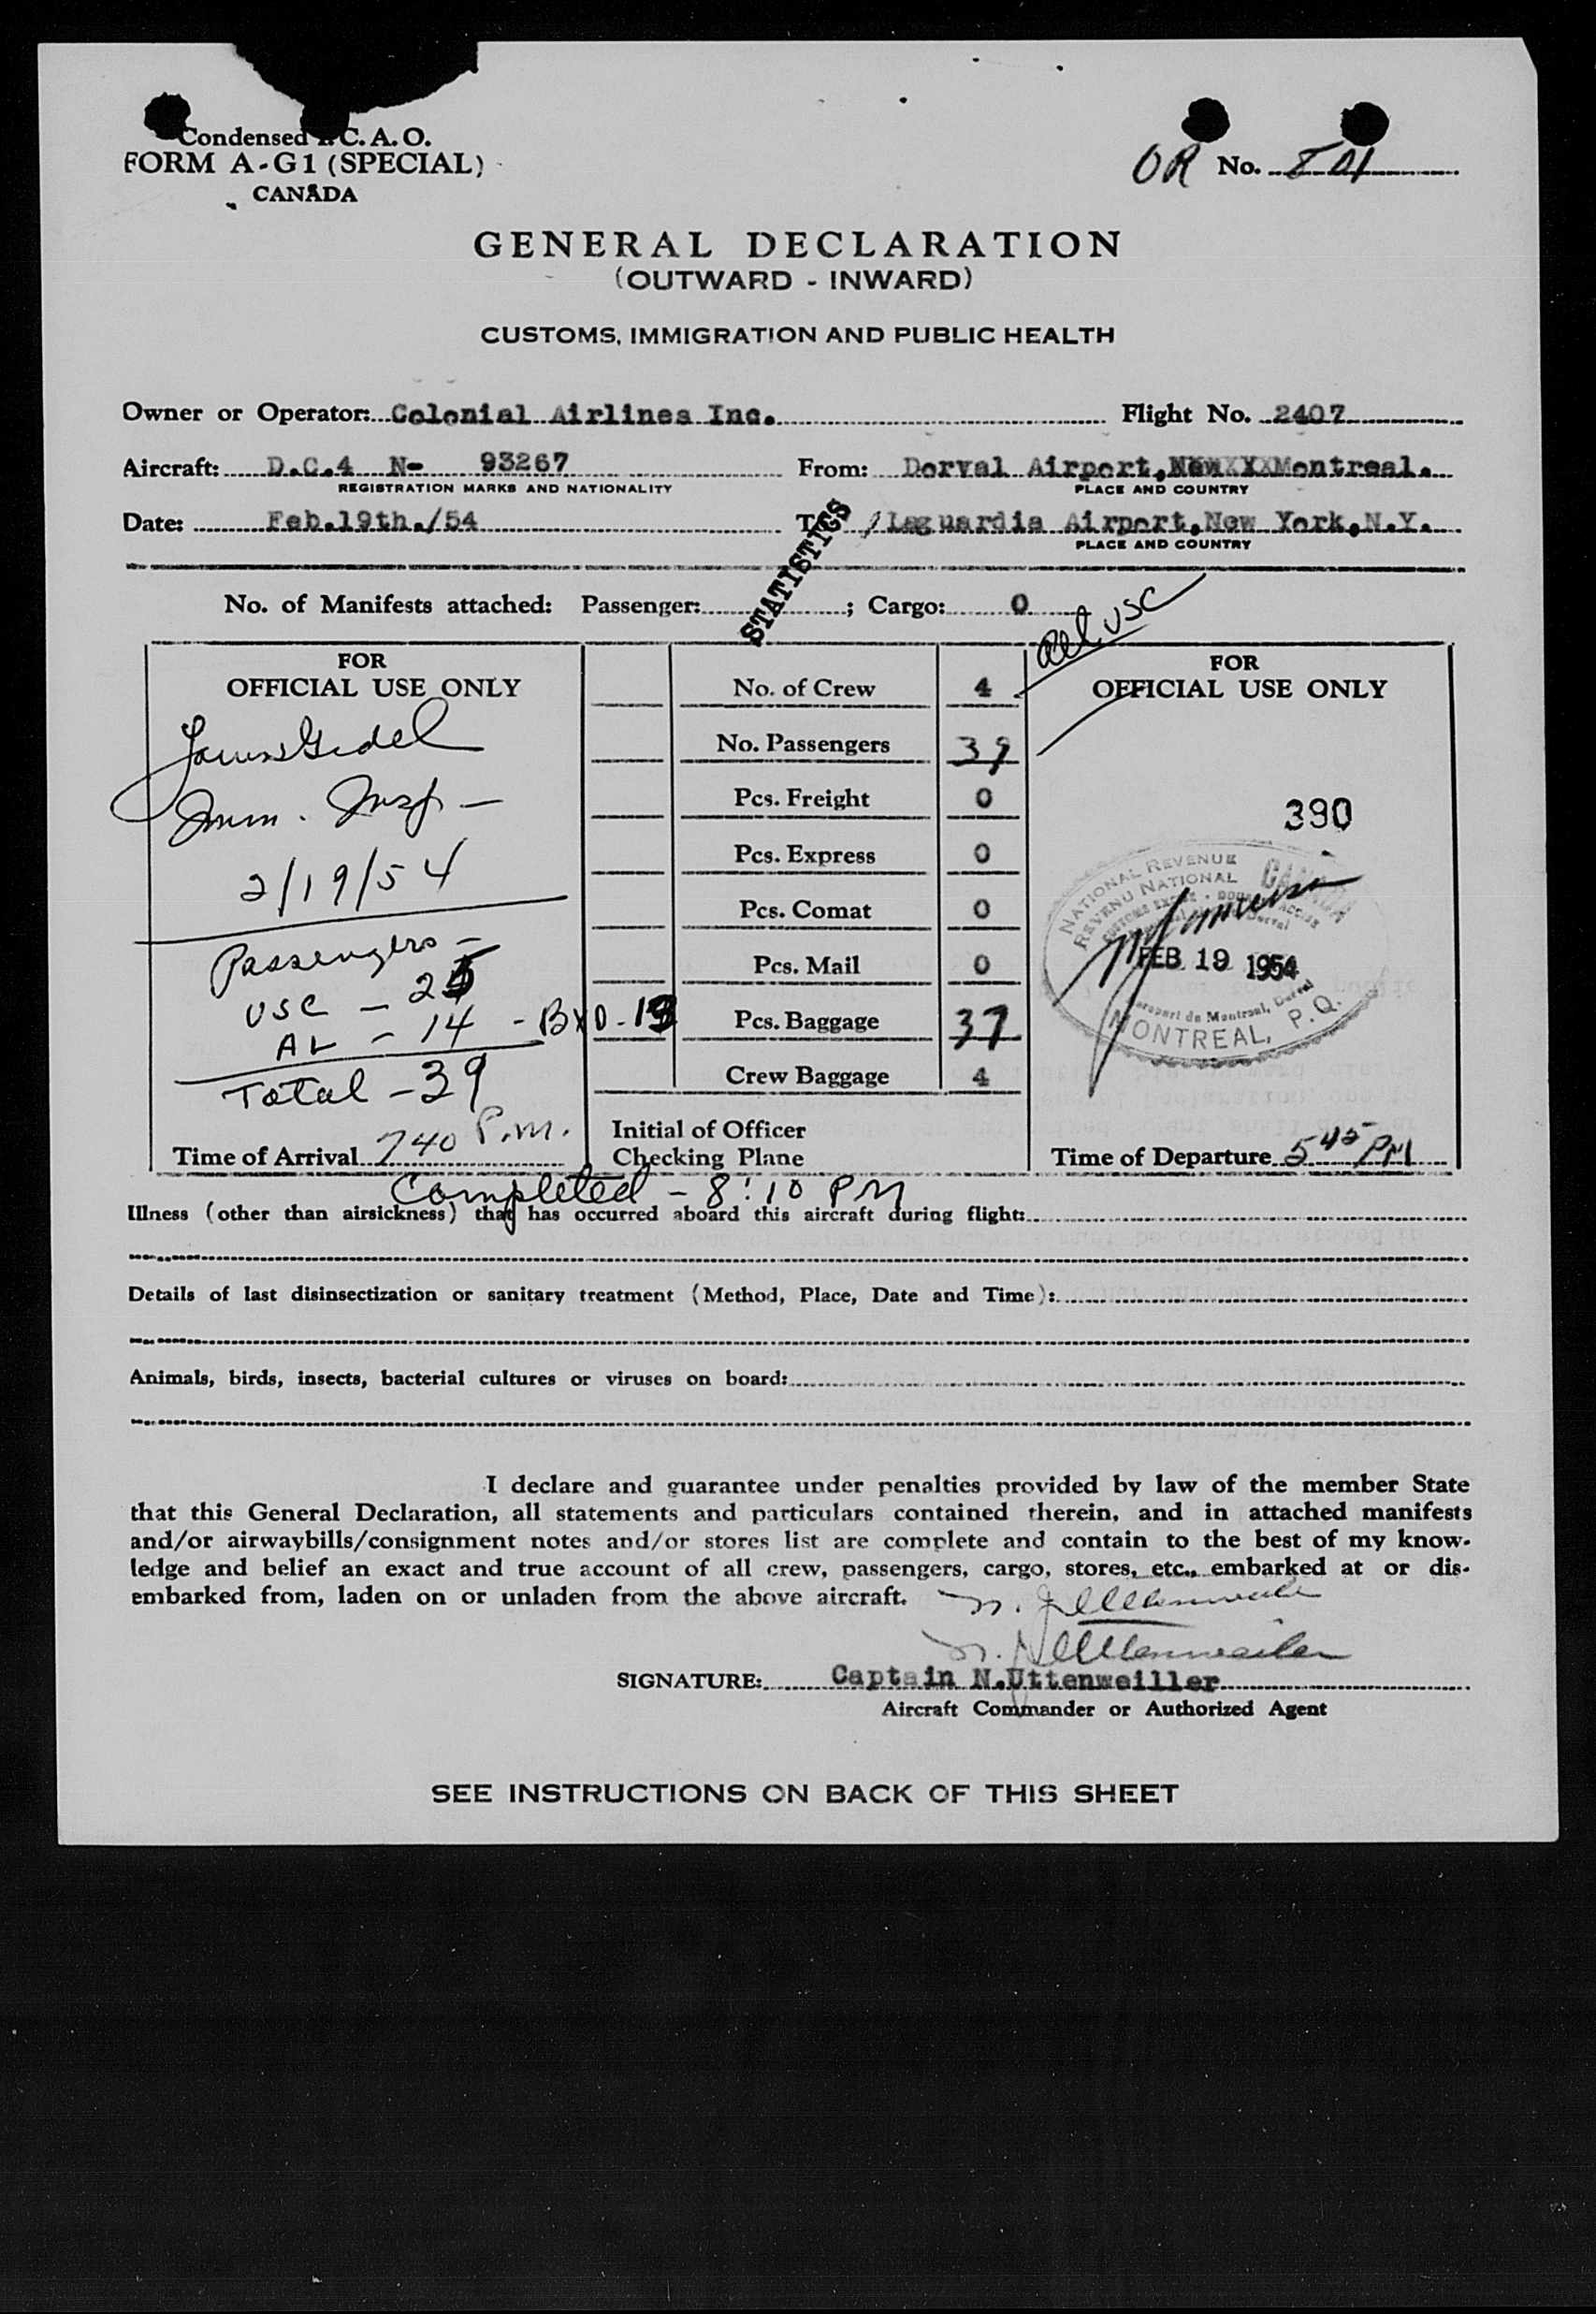 Condensed I.C.A.O.
FORM A-G1 (SPECIAL)
CANADA
OR No.
GENERAL DECLARATION
(OUTWARD - INWARD)
CUSTOMS, IMMIGRATION AND PUBLIC HEALTH
Owner or Operator: Colonial Airlines Inc. Flight No. 2407
Aircraft: D.C.4 N- 93267 From: Dorval Airport, Montreal.
REGISTRATION MARKS AND NATIONALITY PLACE AND COUNTRY
Date: Feb.19th./54 Laguardia Airport, New York, N.Y.
PLACE AND COUNTRY
STATISTICS
No. of Manifests attached: Passenger: ; Cargo: 0
all USC
FOR
OFFICIAL USE ONLY
Imm. Insp -
2/19/54
Passengers -
USC - 25
AL - 14 - BXO - 13
Total - 39
Time of Arrival 740 P.m.
No. of Crew 4
No. Passengers 39
Pcs. Freight 0
Pcs. Express 0
Pcs. Comat 0
Pcs. Mail 0
Pcs. Baggage 37
Crew Baggage 4
Initial of Officer
Checking Plane
FOR
OFFICIAL USE ONLY
390
NATIONAL REVENUE
REVENU NATIONAL
CANADA
FEB 19 1954
MONTREAL, P.Q.
Time of Departure 5 45 PM
Completed - 8:10 PM
Illness (other than airsickness) that has occurred aboard this aircraft during flight:
Details of last disinsectization or sanitary treatment (Method, Place, Date and Time):
Animals, birds, insects, bacterial cultures or viruses on board:
I declare and guarantee under penalties provided by law of the member State
that this General Declaration, all statements and particulars contained therein, and in attached manifests
and/or airwaybills/consignment notes and/or stores list are complete and contain to the best of my know-
ledge and belief an exact and true account of all crew, passengers, cargo, stores, etc., embarked at or dis-
embarked from, laden on or unladen from the above aircraft.
N. Uttenweiler
SIGNATURE: Captain N.Uttenweiller
Aircraft Commander or Authorized Agent
SEE INSTRUCTIONS ON BACK OF THIS SHEET